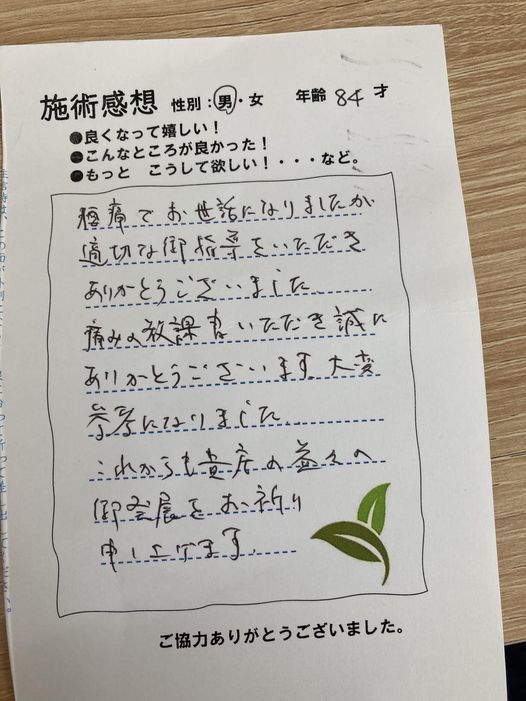 施術感想 性別：男・女 年齢 84 才
●良くなって嬉しい！
●こんなところが良かった！
●もっと こうして欲しい！・・・など。
腰痛でお世話になりましたが
適切な御指導をいただき
ありがとうございました。
痛みの放課書いただき誠に
ありがとうございます。大変
参考になりました。
これからも貴店の益々の
御発展をお祈り
申し上げます。
ご協力ありがとうございました。